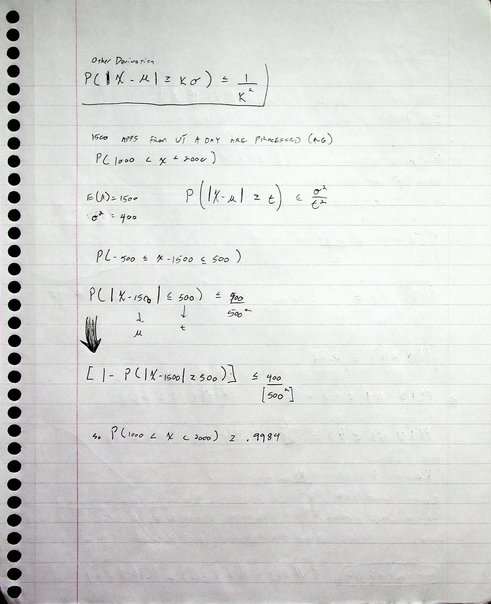 Other Derivation
P(|X - μ| ≥ Kσ) ≤ 1/K²
1500 APPS FROM UT A DAY ARE PROCESSED (AVG)
P(1000 < X < 2000)
E(X) = 1500 P(|X-μ| ≥ t) ≤ σ²/t²
σ² = 400
P(-500 ≤ X-1500 ≤ 500)
P(|X-1500| ≤ 500) ≤ 400/500²
↓ ↓
μ t
[1 - P(|X-1500| ≥ 500)] ≤ 400/[500²]
so P(1000 < X < 2000) ≥ .9984